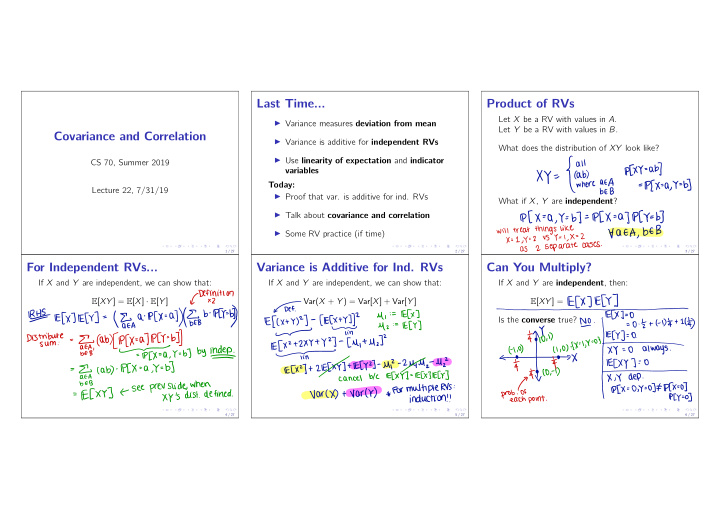 Covariance and Correlation
CS 70, Summer 2019
Lecture 22, 7/31/19
1 / 27
Last Time...
▶ Variance measures deviation from mean
▶ Variance is additive for independent RVs
▶ Use linearity of expectation and indicator
variables
Today:
▶ Proof that var. is additive for ind. RVs
▶ Talk about covariance and correlation
▶ Some RV practice (if time)
2 / 27
Product of RVs
Let X be a RV with values in A.
Let Y be a RV with values in B.
What does the distribution of XY look like?
XY = { all (ab) where a∈A b∈B
P[XY=ab]
= P[X=a, Y=b]
What if X, Y are independent?
P[X=a, Y=b] = P[X=a] P[Y=b]
∀a∈A, b∈B
will treat things like
X=1, Y=2 vs Y=1, X=2
as 2 separate cases.
3 / 27
For Independent RVs...
If X and Y are independent, we can show that:
E[XY] = E[X] · E[Y]
Definition ×2
RHS E[X]E[Y] = (∑ a∈A a·P[X=a])(∑ b∈B b·P[Y=b])
Distribute sum.
= ∑ a∈A, b∈B (ab)[P[X=a]P[Y=b]]
= P[X=a, Y=b] by indep.
= ∑ a∈A b∈B (ab)·P[X=a, Y=b]
= E[XY] ← see prev slide, when
XY's dist. defined.
4 / 27
Variance is Additive for Ind. RVs
If X and Y are independent, we can show that:
Var(X + Y) = Var[X] + Var[Y]
Def
E[(X+Y)²] − [E[X+Y]]²
μ₁ := E[X]
μ₂ := E[Y]
lin
E[X²+2XY+Y²] − [μ₁+μ₂]²
lin
E[X²] + 2E[XY] + E[Y²] − μ₁² − 2μ₁μ₂ − μ₂²
cancel b/c E[XY]=E[X]E[Y]
Var(X) + Var(Y)
* For multiple RVs:
induction!!
5 / 27
Can You Multiply?
If X and Y are independent, then:
E[XY] = E[X]E[Y]
Is the converse true? No.
Y
X
(0,1)
(-1,0)
(1,0)
(0,-1)
¼
¼
¼
¼
prob. of
each point.
E[X]=0
= 0·½ + (-1)¼ + 1(¼)
E[Y]=0
XY = 0 always.
E[XY] = 0
X, Y dep
P[X=0, Y=0] ≠ P[X=0]
P[Y=0]
6 / 27